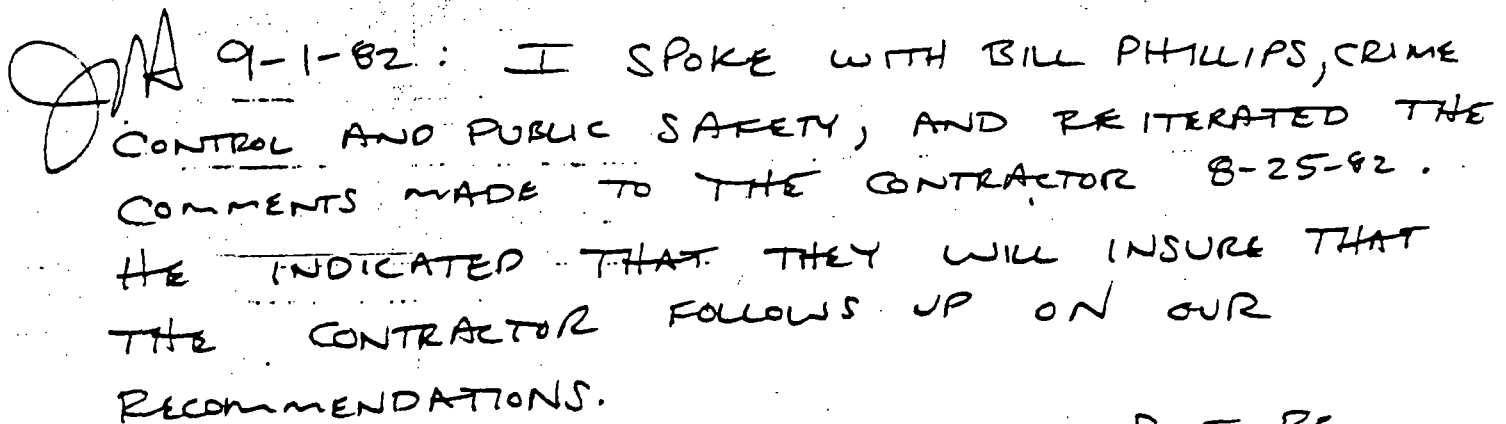 9-1-82: I SPOKE WITH BILL PHILLIPS, CRIME
CONTROL AND PUBLIC SAFETY, AND REITERATED THE
COMMENTS MADE TO THE CONTRACTOR 8-25-82.
HE INDICATED THAT THEY WILL INSURE THAT
THE CONTRACTOR FOLLOWS UP ON OUR
RECOMMENDATIONS.